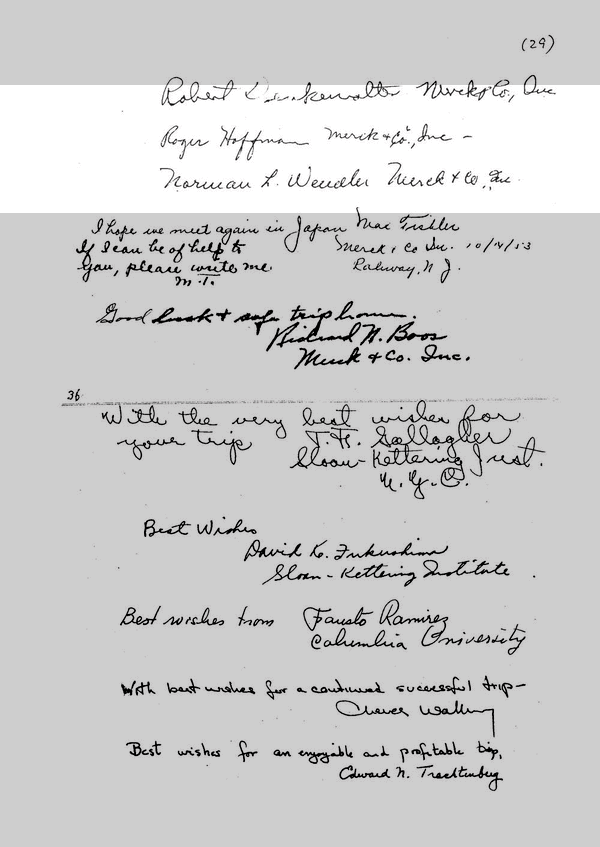 (29)
Robert Denkewalter Merck & Co., Inc
Roger Hoffman Merck & Co., Inc -
Norman L. Wendler Merck & Co., Inc.
I hope we meet again in Japan Max Tishler
If I can be of help to Merck & Co Inc. 10/14/53
you, please write me Rahway, N J.
M.T.
Good luck + safe trip home.
Richard N. Boos
Merck & Co. Inc.
36
With the very best wishes for
your trip T.F. Gallagher
Sloan-Kettering Inst.
N.Y.C.
Best Wishes
David K. Fukushima
Sloan-Kettering Institute
Best wishes from Fausto Ramirez
Columbia University
With best wishes for a continued successful trip-
Cheves Walling
Best wishes for an enjoyable and profitable trip,
Edward N. Trachtenberg